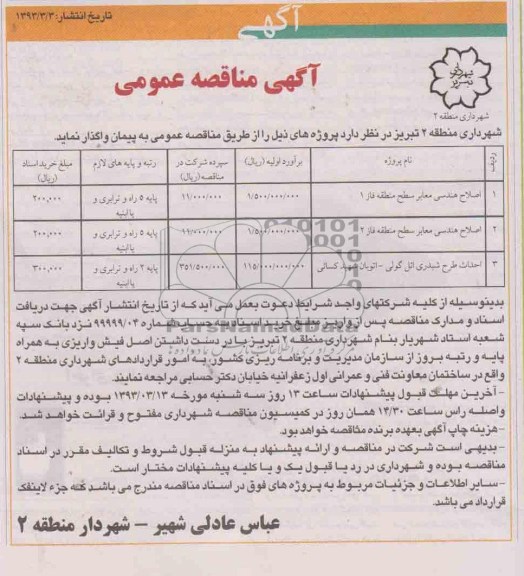 تاریخ انتشار: ۱۳۹۳/۳/۳
آگهی
آگهی مناقصه عمومی
شهرداری تبریز
شهرداری منطقه ۲
شهرداری منطقه ۲ تبریز در نظر دارد پروژه های ذیل را از طریق مناقصه عمومی به پیمان واگذار نماید.
ردیف | نام پروژه | برآورد اولیه (ریال) | سپرده شرکت در مناقصه (ریال) | رتبه و پایه های لازم | مبلغ خرید اسناد (ریال)
۱ | اصلاح هندسی معابر سطح منطقه فاز ۱ | ۱/۵۰۰/۰۰۰/۰۰۰ | ۱۱/۰۰۰/۰۰۰ | پایه ۵ راه و ترابری و یا ابنیه | ۲۰۰,۰۰۰
۲ | اصلاح هندسی معابر سطح منطقه فاز ۲ | ۱/۵۰۰/۰۰۰/۰۰۰ | ۱۱/۰۰۰/۰۰۰ | پایه ۵ راه و ترابری و یا ابنیه | ۲۰۰,۰۰۰
۳ | احداث طرح شبدری ائل گولی - اتوبان شهید کسائی | ۱۱۵/۰۰۰/۰۰۰/۰۰۰ | ۳۵۱/۵۰۰/۰۰۰ | پایه ۲ راه و ترابری و یا ابنیه | ۳۰۰,۰۰۰
بدینوسیله از کلیه شرکتهای واجد شرایط دعوت بعمل می آید که از تاریخ انتشار آگهی جهت دریافت
اسناد و مدارک مناقصه پس از واریز مطلع خرید اسناد به حساب شماره ۹۹۹۹۹/۰۴ نزد بانک سپه
شعبه استاد شهریار بنام شهرداری منطقه ۲ تبریز با در دست داشتن اصل فیش واریزی به همراه
پایه و رتبه بروز از سازمان مدیریت و برنامه ریزی کشور، به امور قراردادهای شهرداری منطقه ۲
واقع در ساختمان معاونت فنی و عمرانی اول زعفرانیه خیابان دکتر حسابی مراجعه نمایند.
- آخرین مهلت قبول پیشنهادات ساعت ۱۳ روز سه شنبه مورخه ۱۳۹۳/۰۳/۱۳ بوده و پیشنهادات
واصله راس ساعت ۱۴/۳۰ همان روز در کمیسیون مناقصه شهرداری مفتوح و قرائت خواهد شد.
- هزینه چاپ آگهی بعهده برنده مناقصه خواهد بود.
- بدیهی است شرکت در مناقصه و ارائه پیشنهاد به منزله قبول شروط و تکالیف مقرر در اسناد
مناقصه بوده و شهرداری در رد یا قبول یک و یا کلیه پیشنهادات مختار است.
- سایر اطلاعات و جزئیات مربوط به پروژه های فوق در اسناد مناقصه مندرج می باشد که جزء لاینفک
قرارداد می باشد.
عباس عادلی شهیر - شهردار منطقه ۲